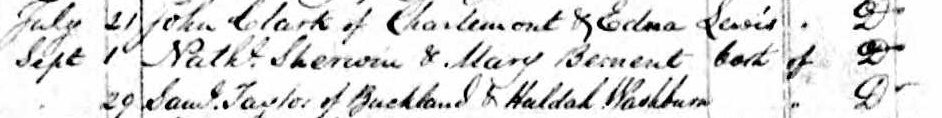 July 21 John Clark of Charlemont & Edna Lewis " Do
Sept 1 Nathl. Sherwin & Mary Bement both of Do
" 29 Saml. Taylor of Buckland & Huldah Washburn " Do